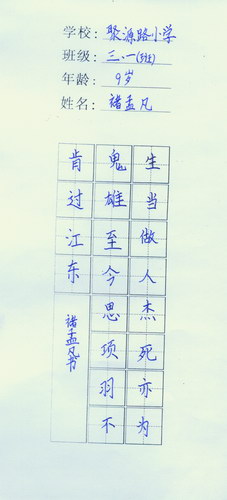 学校：聚源路小学
班级：三.一(班)
年龄：9岁
姓名：褚孟凡
生当做人杰死亦为
鬼雄至今思项羽不
肯过江东
褚孟凡书